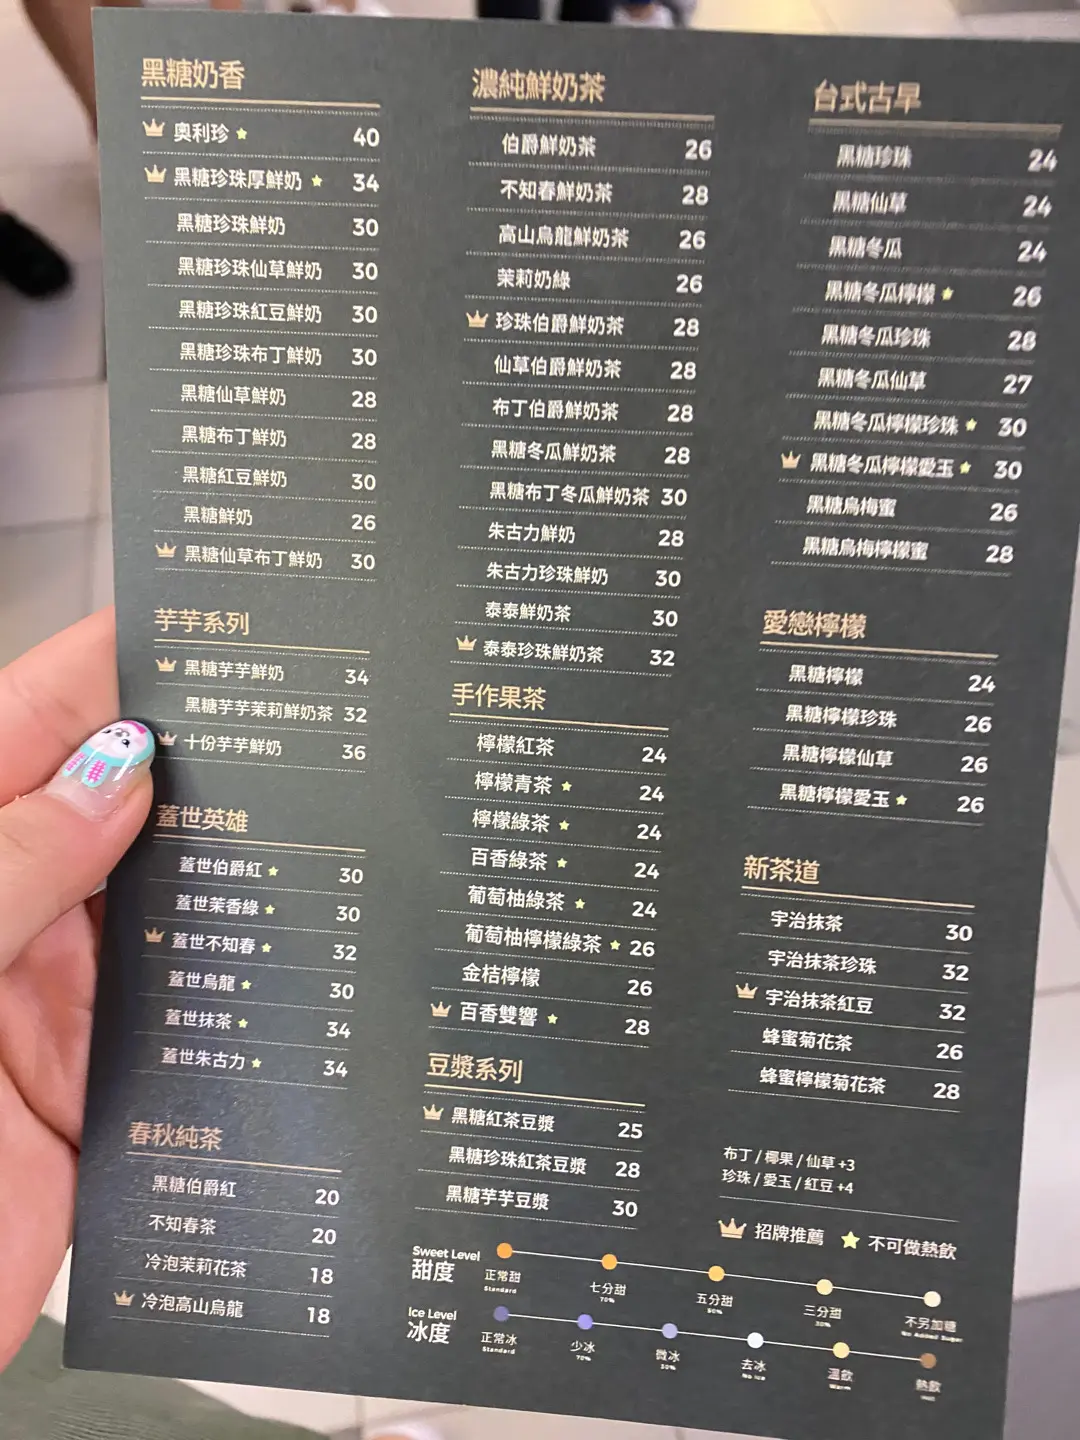 黑糖奶香
奧利珍 ★ 40
黑糖珍珠厚鮮奶 ★ 34
黑糖珍珠鮮奶 30
黑糖珍珠仙草鮮奶 30
黑糖珍珠紅豆鮮奶 30
黑糖珍珠布丁鮮奶 30
黑糖仙草鮮奶 28
黑糖布丁鮮奶 28
黑糖紅豆鮮奶 30
黑糖鮮奶 26
黑糖仙草布丁鮮奶 30
芋芋系列
黑糖芋芋鮮奶 34
黑糖芋芋茉莉鮮奶茶 32
十份芋芋鮮奶 36
蓋世英雄
蓋世伯爵紅 ★ 30
蓋世茉香綠 ★ 30
蓋世不知春 ★ 32
蓋世烏龍 ★ 30
蓋世抹茶 ★ 34
蓋世朱古力 ★ 34
春秋純茶
黑糖伯爵紅 20
不知春茶 20
冷泡茉莉花茶 18
冷泡高山烏龍 18
濃純鮮奶茶
伯爵鮮奶茶 26
不知春鮮奶茶 28
高山烏龍鮮奶茶 26
茉莉奶綠 26
珍珠伯爵鮮奶茶 28
仙草伯爵鮮奶茶 28
布丁伯爵鮮奶茶 28
黑糖冬瓜鮮奶茶 28
黑糖布丁冬瓜鮮奶茶 30
朱古力鮮奶 28
朱古力珍珠鮮奶 30
泰泰鮮奶茶 30
泰泰珍珠鮮奶茶 32
手作果茶
檸檬紅茶 24
檸檬青茶 ★ 24
檸檬綠茶 ★ 24
百香綠茶 ★ 24
葡萄柚綠茶 ★ 24
葡萄柚檸檬綠茶 ★ 26
金桔檸檬 26
百香雙響 ★ 28
豆漿系列
黑糖紅茶豆漿 25
黑糖珍珠紅茶豆漿 28
黑糖芋芋豆漿 30
台式古早
黑糖珍珠 24
黑糖仙草 24
黑糖冬瓜 24
黑糖冬瓜檸檬 ★ 26
黑糖冬瓜珍珠 28
黑糖冬瓜仙草 27
黑糖冬瓜檸檬珍珠 ★ 30
黑糖冬瓜檸檬愛玉 ★ 30
黑糖烏梅蜜 26
黑糖烏梅檸檬蜜 28
愛戀檸檬
黑糖檸檬 24
黑糖檸檬珍珠 26
黑糖檸檬仙草 26
黑糖檸檬愛玉 ★ 26
新茶道
宇治抹茶 30
宇治抹茶珍珠 32
宇治抹茶紅豆 32
蜂蜜菊花茶 26
蜂蜜檸檬菊花茶 28
布丁 / 椰果 / 仙草 +3
珍珠 / 愛玉 / 紅豆 +4
招牌推薦 ★ 不可做熱飲
Sweet Level
甜度
正常甜 七分甜 五分甜 三分甜 不另加糖
Standard 70% 50% 30% No Added Sugar
Ice Level
冰度
正常冰 少冰 微冰 去冰 溫飲 熱飲
Standard 70% 30% No Ice Warm Hot